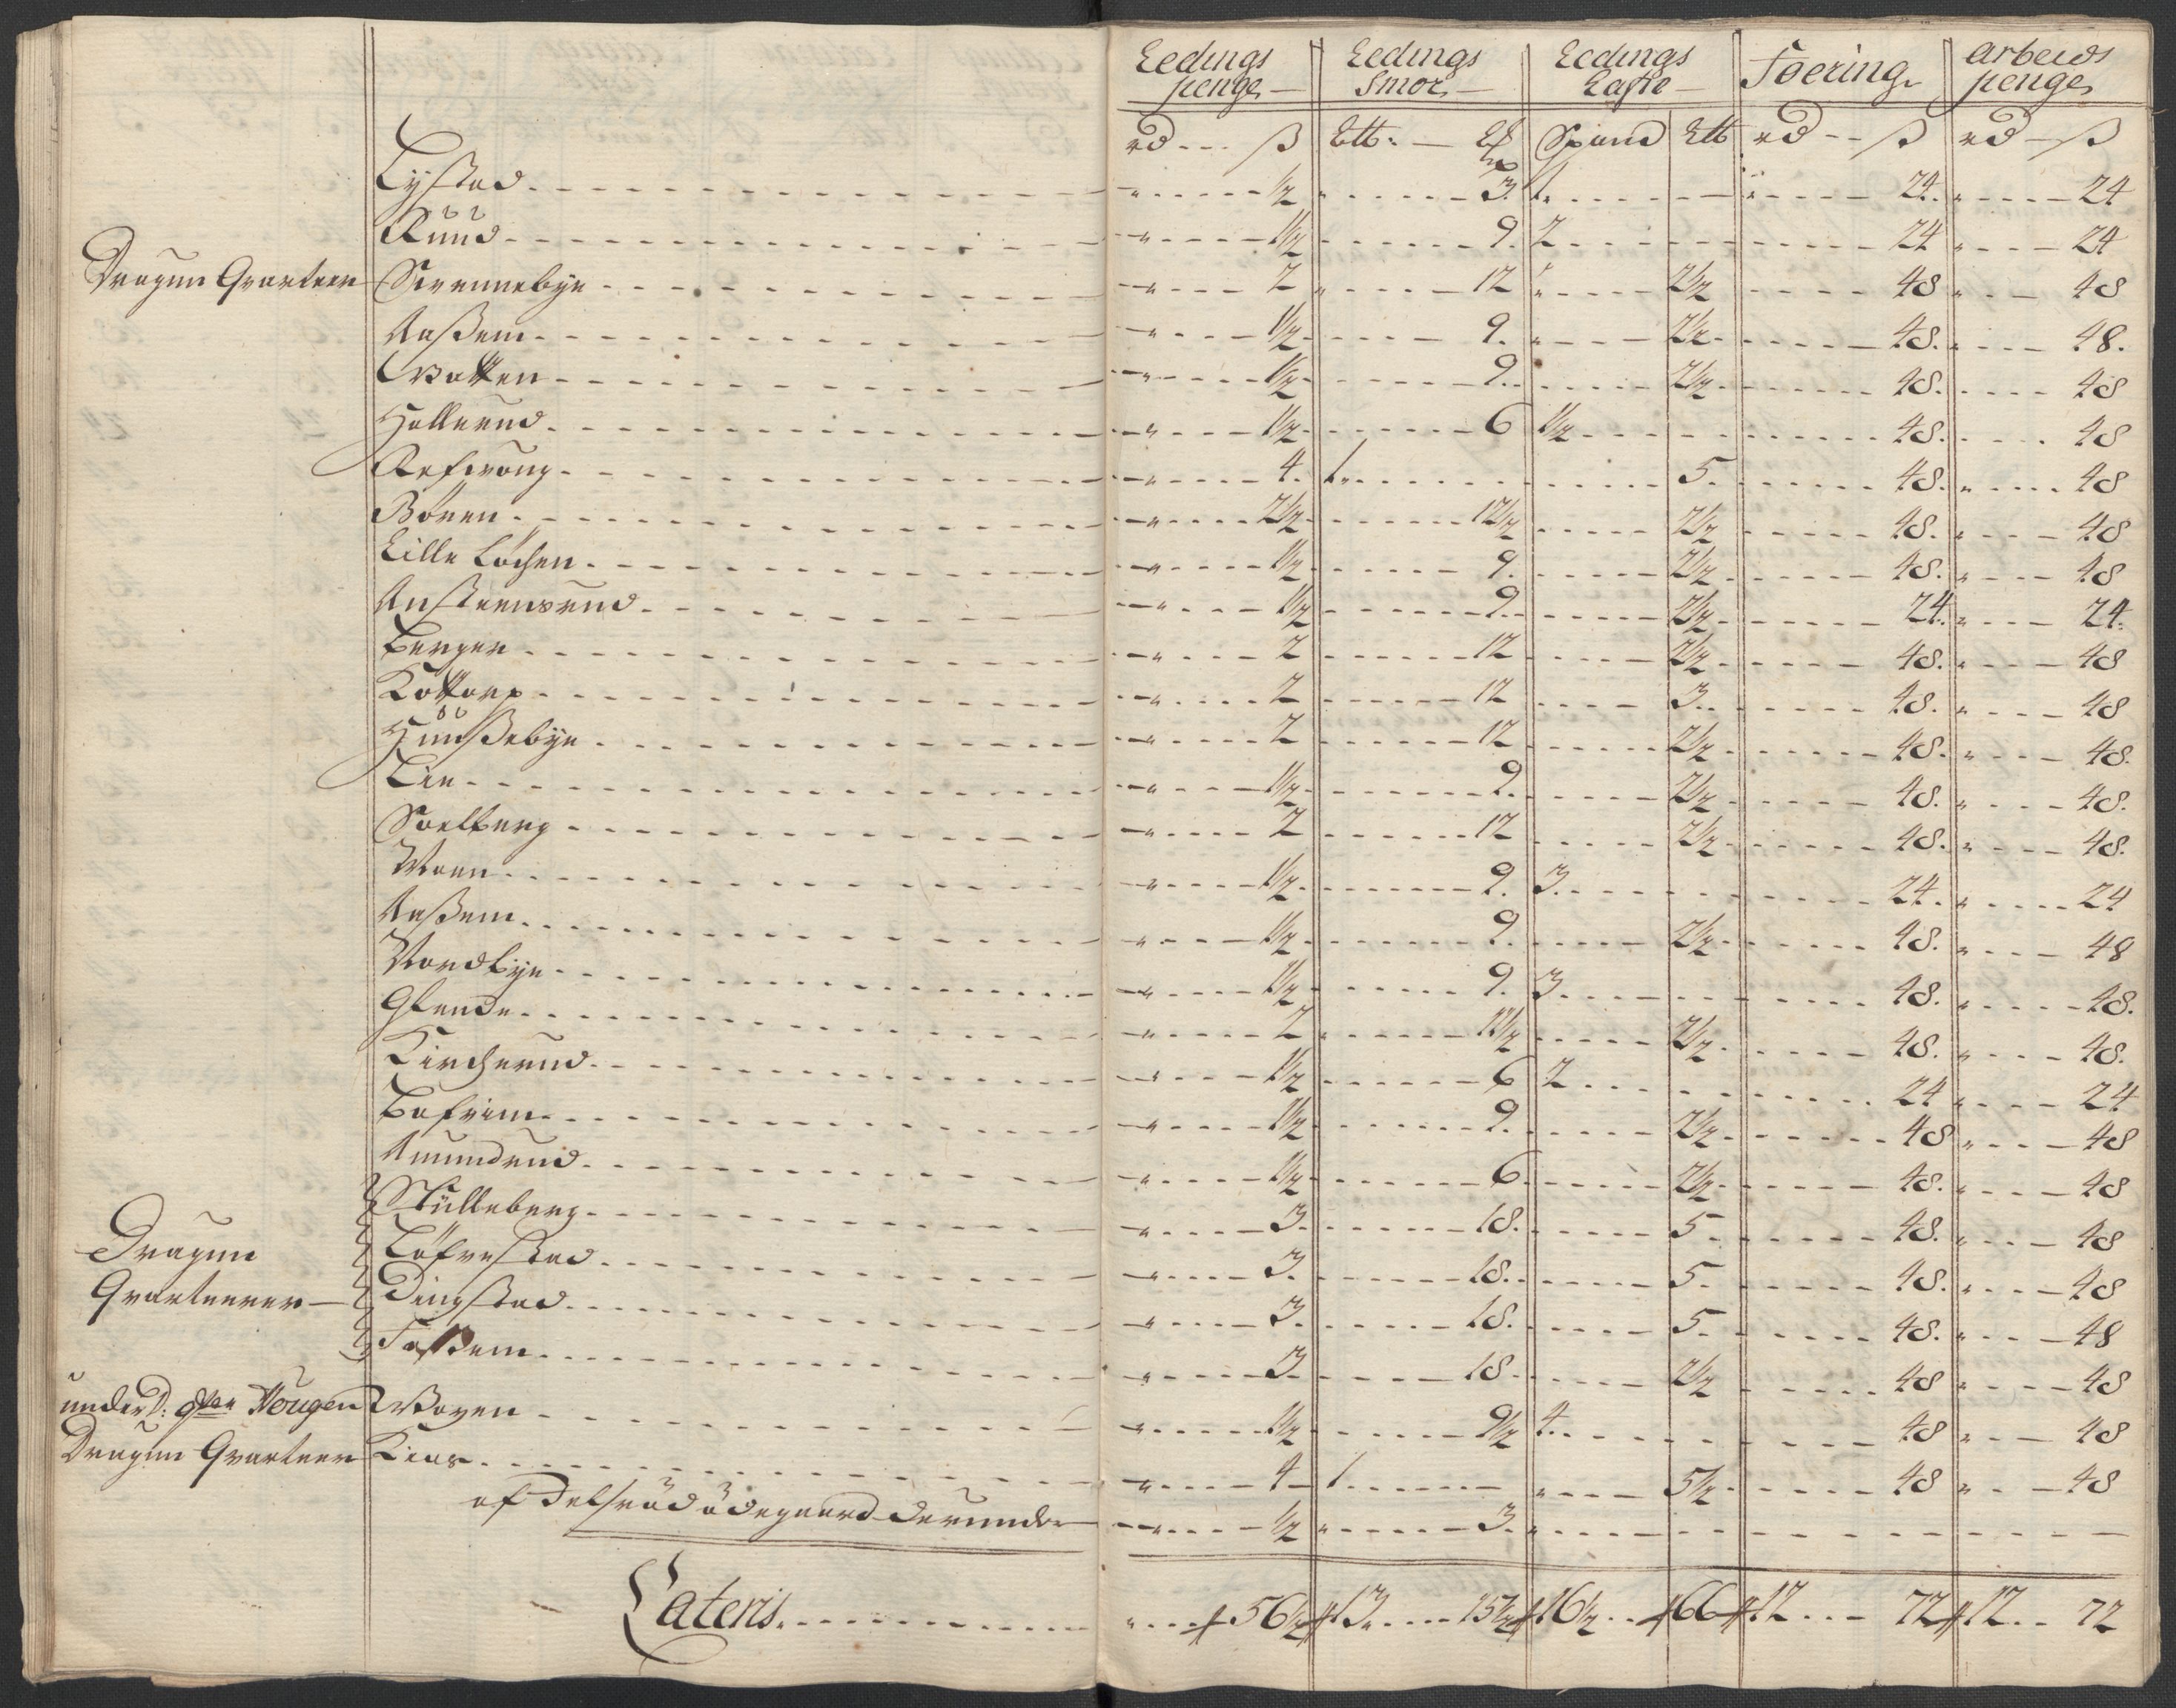 Ledings penge Ledings Smör Ledings Laste Foering arbeids penge
rd ß Ltt: Spand Ltt rd ß rd ß
Lystad ½ 3. 1. 24. 24
Ruud 1½ 9. 2 24 24
Dragun Qvarteer Sørennebye 2 12 2½ 48 48
Aaßem 1½ 9. 2½ 48. 48.
1½ 9. 2½ 48. 48
Hallerud 1½ 6 1½ 48. 48
4. 1. 5. 48. 48
Bönen 2½ 12½ 2½ 48. 48
Lille Löchen 1½ 9. 2½ 48. 48
Ansteensrud 1½ 9. 2½ 24. 24.
Berger 2 12 2½ 48. 48
Kottorp 2 12 3. 48. 48
Huußebye 2 12 2½ 48. 48.
Lie 1½ 9. 2½ 48. 48.
Soelberg 2 12 2½ 48. 48.
Moen 1½ 9. 3. 24. 24
Aaßem 1½ 9. 2½ 48. 48
Nordbye 1½ 9. 3. 48. 48.
Glende 2 11½ 2½ 48. 48.
Kircherud 1½ 6 2 24 24
1½ 9. 2½ 48 48
Amundrud 1½ 6. 2½ 48. 48
Stülleberg 3. 18. 5. 48. 48
Dragun Löfvestad 3. 18. 5. 48. 48
Qvarteerer Dingstad 3. 18. 5. 48. 48
Foßem 3. 18. 2½ 48 48
under D: Hougen 1½ 9½ 4. 48 48
Dragun Qvarteer Kias 4 1 5½ 48 48
af ödegaard derunder ½ 3.
Lateris 56½ 13. 15½ 16½ 66 12 72 12 72